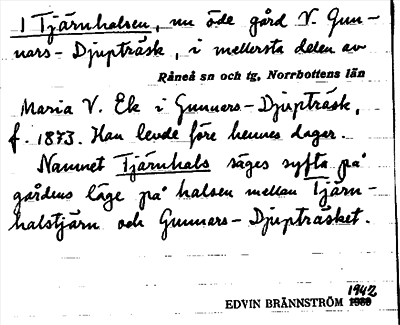 I Tjärnhalsen, nu öde gård V. Gun-
nars-Djupträsk, i mellersta delen av
Råneå sn och tg, Norrbottens län
Maria V. Ek i Gunnars-Djupträsk,
f. 1873. Han levde före hennes dagar.
Namnet Tjärnhals säges syfta på
gårdens läge på halsen mellan Tjärn-
halstjärn och Gunnars-Djupträsket.
1942
EDVIN BRÄNNSTRÖM 1930